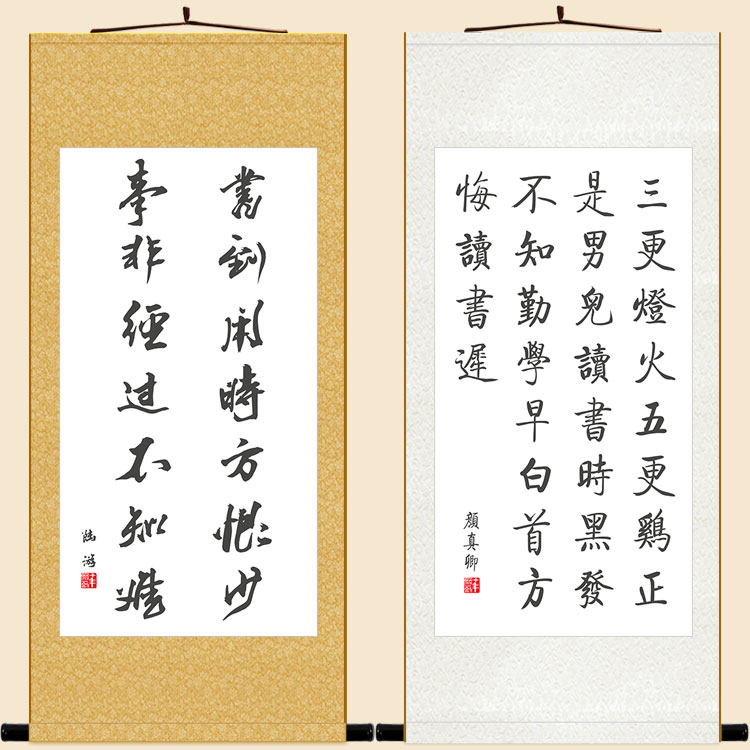 書到用時方恨少
事非經過不知難
陸游
三更燈火五更鷄正
是男兒讀書時黑發
不知勤學早白首方
悔讀書遲
顔真卿